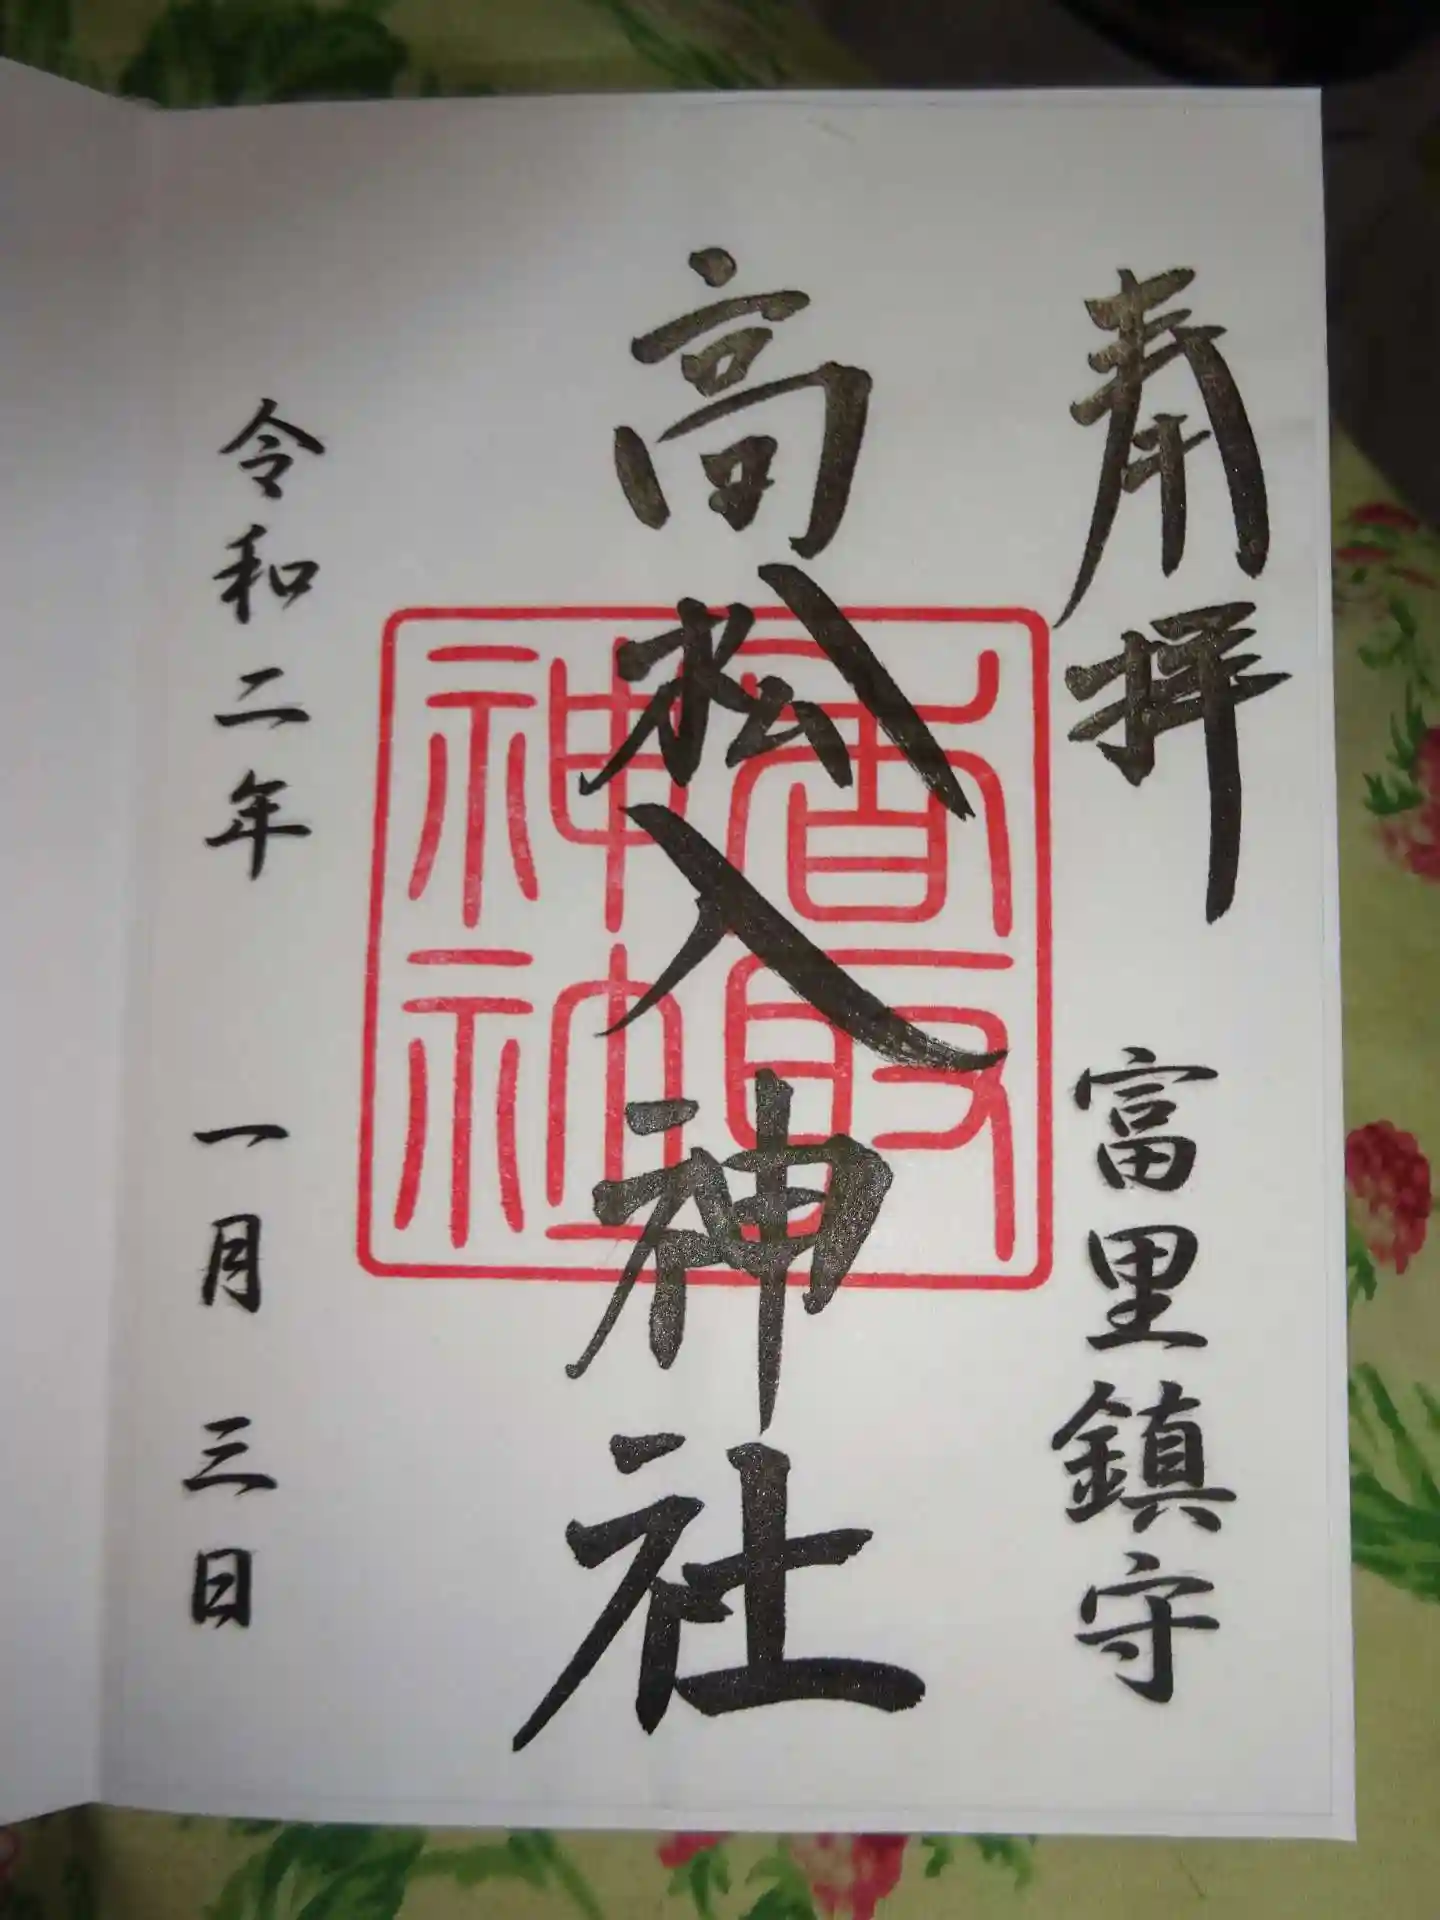 奉拝 富里鎮守
高松入神社
香取
神社
令和二年 一月三日